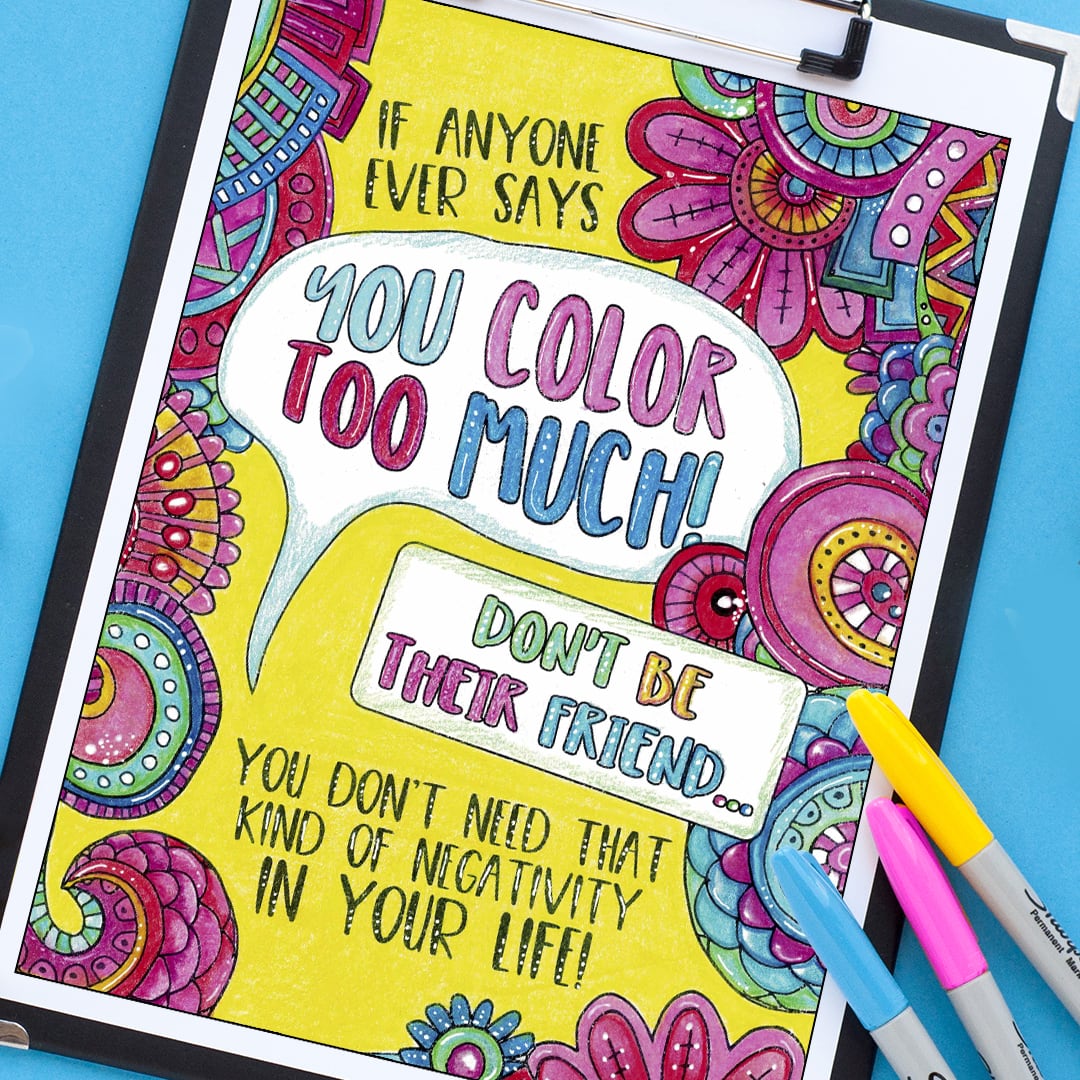 IF ANYONE
EVER SAYS
YOU COLOR
TOO MUCH!
DON'T BE
THEIR FRIEND...
YOU DON'T NEED THAT
KIND OF NEGATIVITY
IN YOUR LIFE!
Sharpie
Permanent Mark
Permanent